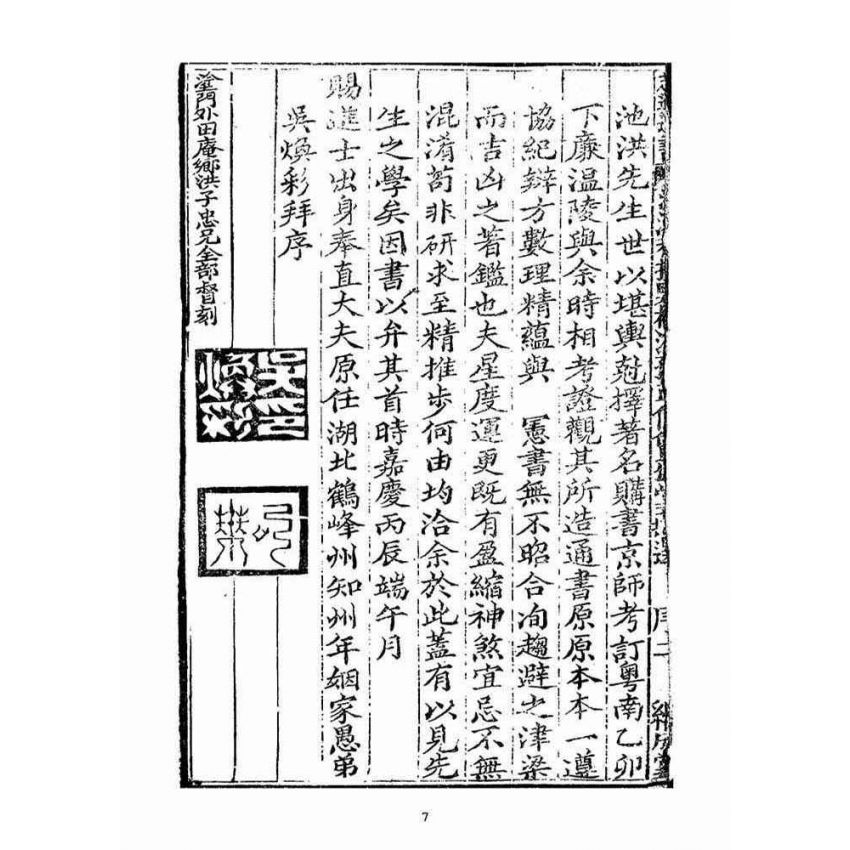 池洪先生世以堪輿尅擇著名購書京師考訂粵南乙卯
下廉溫陵與余時相考證觀其所造通書原原本本一遵
協紀辯方數理精蘊與　憲書無不昭合洵趨避之津梁
而吉凶之著鑑也夫星度運更既有盈縮神煞宜忌不無
混淆苟非研求至精推步何由均洽余於此蓋有以見先
生之學矣因書以弁其首時嘉慶丙辰端午月
賜進士出身奉直大夫原任湖北鶴峰州知州年姻家愚弟
吳煥彩拜序
塗門外田庵鄉洪子忠兄全部督刻
吳煥彩印
序二
繼成堂
7